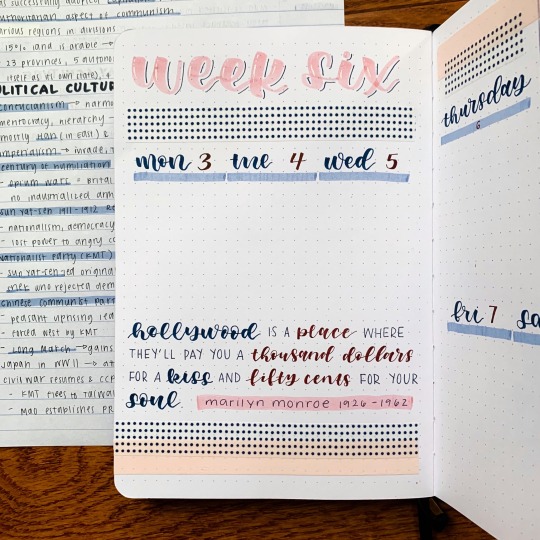 as successfully adopted capitalism
authoritarian aspect of communism
various regions in divisions
15% land is arable →
- 23 provinces, 5 autonom
itself as its own state), 4
OLITICAL CULTUR
confucianism → harmo
meritocracy, hierarchy
mostly Han (in East) &
imperialism → invade, t
century of humiliation
- opium wars = Brita
no industrialized arm
sun yat-sen 1911-1912 Re
- nationalism, democracy
- lost power to angry co
Nationalist Party (KMT)
- sun yat-sen ed origina
who rejected dem
Chinese communist part
- peasant uprising lea
- forced west by KMT
- Long March → gains
Japan in WWII → at
civil war resumes & CCP
- KMT flees to Taiwa
- Mao establishes PR
week six
mon 3 tue 4 wed 5
hollywood IS A place WHERE
THEY'LL PAY YOU A thousand dollars
FOR A kiss AND fifty cents FOR YOUR
soul. marilyn monroe 1926-1962
thursday
6
fri 7 sa